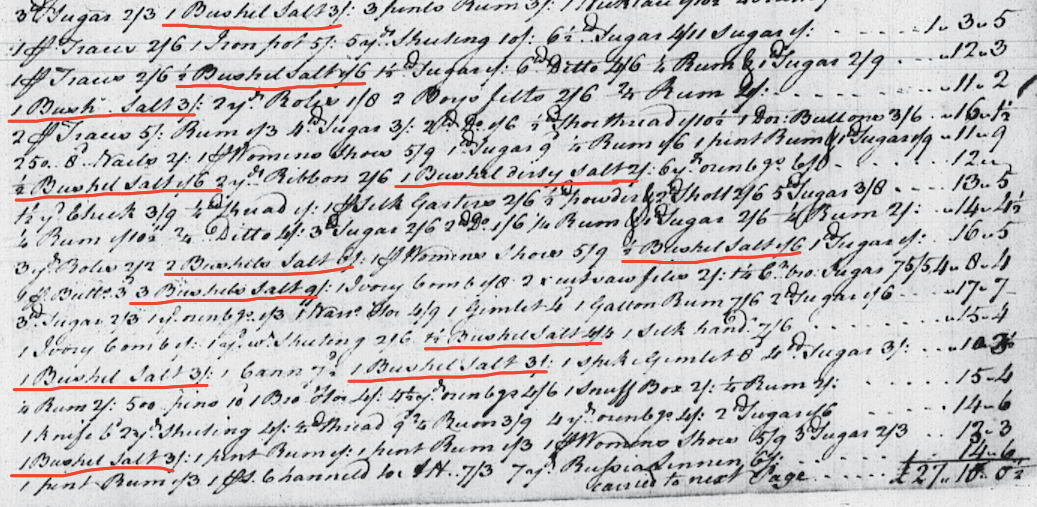 3 lb Sugar 2/3 1 Bushel Salt 3/: 3 pints Rum 3/:
1 pr Traces 2/6 1 Iron pot 5/: 5 yds Sheeting 10/: 6½ lb Sugar 4/11 Sugar 1/: 1..3..5
1 pr Traces 2/6 ½ Bushel Salt 1/6 1½ lb Sugar 1/: 6 lb Ditto 4/6 ¼ Rum & 1 lb Sugar 2/9 ..12..3
1 Bush. Salt 3/: 2 yds Rolls 1/8 2 Boys felts 2/6 ¼ Rum 2/: ..11..2
2 pr Traces 5/: Rum 1/3 4 lb Sugar 3/: 2 lb Do 1/6 ½ lb Shoe thread 1/10½ 1 Doz: Buttons 3/6
250. 8d Nails 2/: 1 pr Womens Shoes 5/9 1 lb Sugar 9d ¼ Rum 1/6 1 pint Rum & 1 Sugar 1/9 ..11..9
½ Bushel Salt 1/6 2 yds Ribbon 2/6 1 Bushel dirty Salt 2/: 6 yds 12..
½ yd Check 3/9 ¼ lb Thread 1/: 1 pr Silk Garters 2/6 ½ powder & 2 lb Shott 2/6 5 lb Sugar 3/8 13..5
¼ Rum 1/10½ ¾ Ditto 4/: 3 lb Sugar 2/6 2 lb Do 1/6 ¼ Rum & 1 lb Sugar 2/6 ¼ Rum 2/: ..14..4½
3 yds Rolls 2/2 2 Bushels Salt 6/: 1 pr Womens Shoes 5/9 ½ Bushel Salt 1/6 1 lb Sugar 1/: 16..5
3d 3 Bushels Salt 9/: 1 Ivory Comb 1/8 2 cutsaw files 2/: Sugar 75/5 4..8..4
3 lb Sugar 2/3 4/9 1 Gimlet 4d 1 Gallon Rum 7/6 2 lb Sugar 1/6 ..17..7
1 Ivory Comb 1/: 1 yd Sheeting 2/6 1½ Bushel Salt 4/4 1 Silk handf 7/6 ..15..4
1 Bushel Salt 3/: 1 Cann 7d 1 Bushel Salt 3/: 1 spike Gimlet 8d 4 lb Sugar 3/:
¼ Rum 2/: 500 pins 10d 4/: 4/6 1 Snuff Box 2/: ¼ Rum 2/: 15..4
1 Knife 6d 2 yds Sheeting 4/: ¼ lb Thread 9d ½ Rum 3/9 4 yds 4/: 2 lb Sugar 1/6 14..6
1 Bushel Salt 3/: 1 pint Rum 1/: 1 pint Rum 1/3 1 pr Womens Shoes 5/9 3 lb Sugar 2/3 13..3
1 pint Rum 1/3 7/3 7 yds Russia Linnen 6/: 14..6
Carried to next Page £27..18..0½